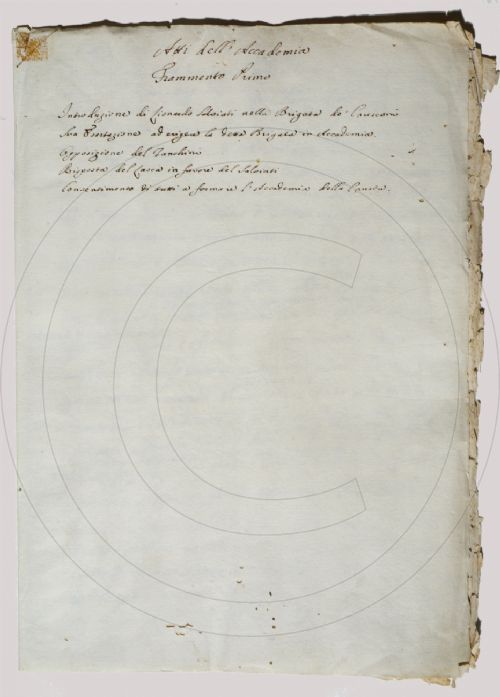 Atti dell'Accademia
Frammento Primo
Introduzione di Lionardo Salviati nella Brigata de' Cruscconi
Sua Esortazione ad erigere la detta Brigata in Accademia.
Opposizione del Zanchini
Risposta del Lasca in favore del Salviati
Consentimento di tutti a formare l'Accademia della Crusca.